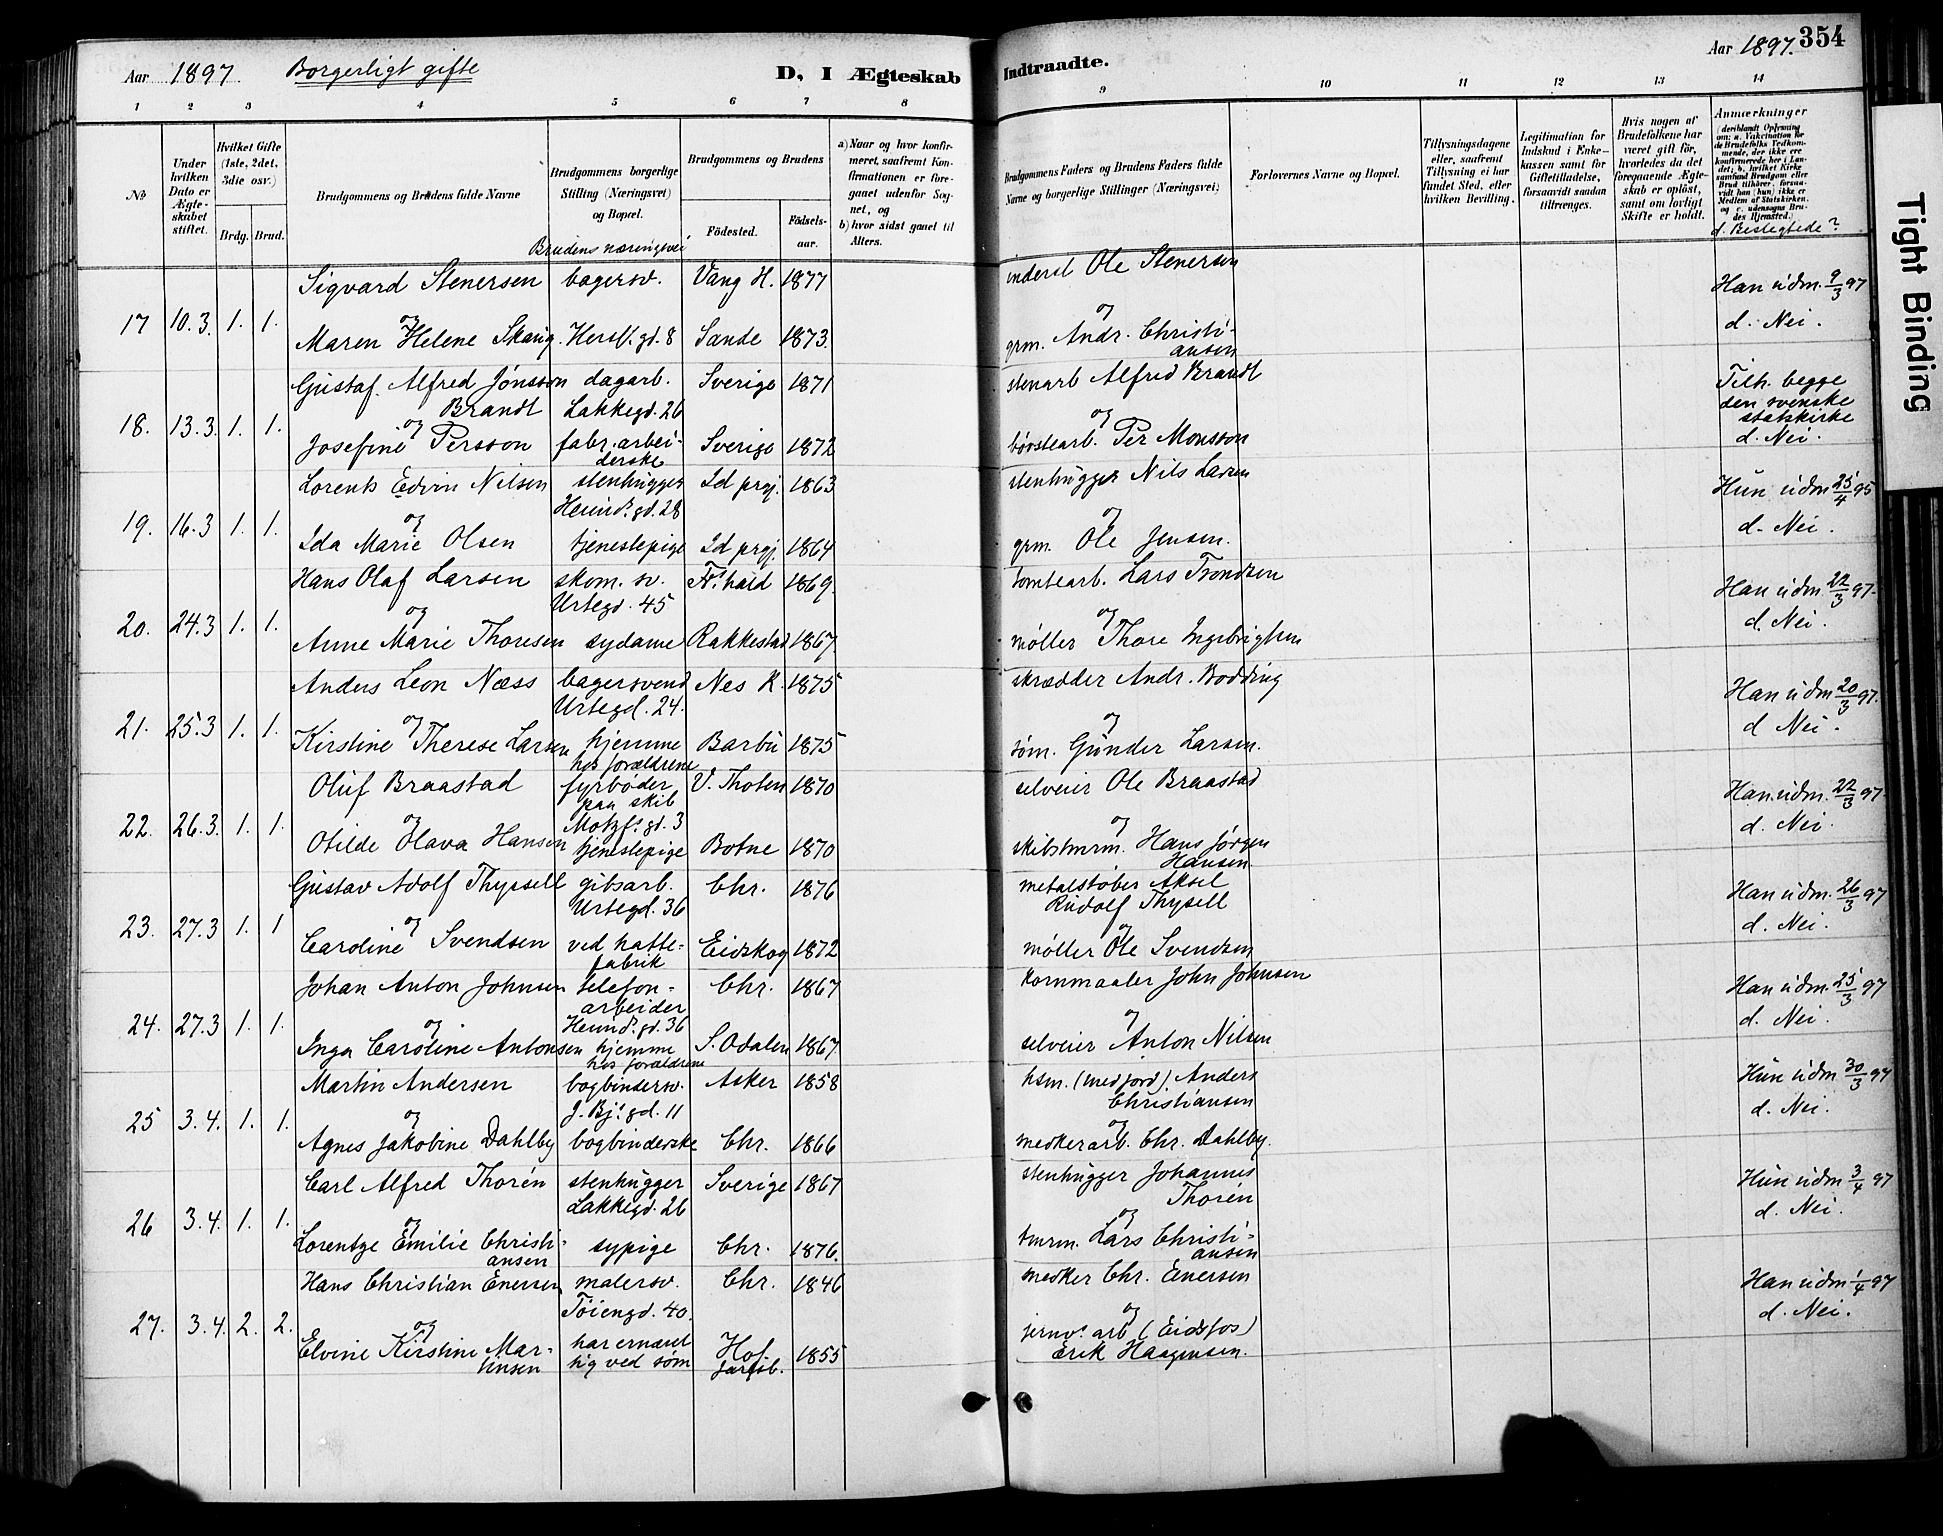 Aar 1897. Borgerligt gifte D, I Ægteskab
Indtraadte. Aar 1897. 354
1 2 3 4 5 6 7 8
9 10 11 12 13 14
No
Under hvilken Dato er Ægteskabet stiftet.
Hvilket Gifte (1ste, 2det, 3die osv.)
Brdg. Brud.
Brudgommens og Brudens fulde Navne
Brudgommens borgerlige Stilling (Næringsvei) og Bopæl.
Brudens næringsvei
Brudgommens og Brudens
Fødested. Fødselsaar.
a) Naar og hvor konfirmeret, saafremt Konfirmationen er foregaaet udenfor Sognet, og
b) hvor sidst gaaet til Alters.
Brudgommens Faders og Brudens Faders fulde Navne og borgerlige Stillinger (Næringsvei)
Forlovernes Navne og Bopæl.
Tillysningsdagene eller, saafremt Tillysning ei har fundet Sted, efter hvilken Bevilling.
Legitimation for Indskud i Enkekassen samt for Giftetilladelse, forsaavidt saadan tiltrænges.
Hvis nogen af Brudefolkene har været gift før, hvorledes da det foregaaende Ægteskab er opløst, samt om lovligt Skifte er holdt.
Anmærkninger
(deriblandt Oplysning om: a. Vakcination for de Brudefolks Vedkommende, der ikke ere konfirmerede her i Landet; b. hvilket Kirkesamfund Brudgom eller Brud tilhører, forsaavidt han (hun) ikke er Medlem af Statskirken, og c. udensogns Brudes Hjemsted.)
d. Beslegtede?
Sigvard Stenersen bagersv. Vang H. 1877 inderst Ole Stenersen Han udm. 9/3 97
17 10.3. 1. 1. og og d. Nei.
Maren Helene Skaug Hersl. gd. 8 Sande 1873. grm. Andr. Christiansen
Gustaf Alfred Jönsson dagarb. Sverige 1871 stenarb Alfred Brandt Tilh. begge
Brandt Lakkegd. 26 den svenske
18. 13.3. 1. 1. og og statskirke
Josefine Persson fabr. arbeiderske Sverige 1872 børstearb. Per Monsson d. Nei.
Lorents Edvin Nilsen stenhugger Id prgj. 1863 stenhugger Nils Larsen Hun udm 25/4 95
Heimd. gd. 28
19. 16.3 1. 1. og og d. Nei.
Ida Marie Olsen tjenestepige Id prgj. 1864 grm. Ole Jensen.
Hans Olaf Larsen skom. sv. Fr.hald 1869. tomtearb. Lars Trondsen Han udm. 22/3 97.
Urtegd. 45
20. 24.3 1. 1. og og d. Nei.
Anne Marie Thoresen sydame Rakkestad 1867 møller Thore Ingebrigtsen
Anders Leon Næss bagersvend Nes R. 1875 skrædder Andr. Bodding Han udm 20/3 97.
Urtegd. 24.
21. 25.3 1. 1. og og d Nei.
Kirstine Therese Larsen hjemme Barbu 1875 søm. Gunder Larsen.
hos forældrene
Oluf Braastad fyrbøder V. Thoten 1870 selveier Ole Braastad Han udm. 22/3 97.
paa skib
22. 26.3. 1. 1. og Motzf. gd. 3 og d. Nei.
Otilde Olava Hansen tjenestepige Botne 1870 skibstmrm. Hans Jørgen Hansen
Gustav Adolf Thysell gibsarb. Chr. 1876 metalstøber Aksel Rudolf Thysell Han udm. 26/3 97
Urtegd. 36
23. 27.3 1. 1 og og d. Nei.
Caroline Svendsen ved hattefabrik Eidskog 1872 møller Ole Svendsen
Johan Anton Johnsen telefonarbeider Chr. 1867 kornmaaler John Johnsen Han udm. 25/3 97
24. 27.3 1. 1. og Heimd. gd. 36 og d. Nei.
Inga Caroline Antonsen hjemme S. Odalen 1867. selveier Anton Nilsen
hos forældrene
Martin Andersen bogbindersv. Asker 1858 hsm. (med jord). Anders Christiansen Hun udm 30/3 97
J. Bj. gd. 11
25 3.4. 1. 1. og og d. Nei.
Agnes Jakobine Dahlby bogbinderske Chr. 1866 meskerarb. Chr. Dahlby.
Carl Alfred Thorén stenhugger Sverige 1867 stenhugger Johannes Thorén Hun udm 3/4 97
Lakkegd. 26
26 3.4. 1. 1. og og d. Nei.
Lorentze Emilie Christiansen sypige Chr. 1876. tmrm. Lars Christiansen
Hans Christian Enersen malersv. Chr. 1846 mesker Chr. Enersen Han udm 1/4 97
Tøiengd. 40.
27. 3.4. 2. 2. og og d. Nei.
Elvine Kirstine Martinsen har ernæret sig ved søm Hof Jarlsb. 1855 jernv. arb (Eidsfos) Erik Haagensen.
Tight Binding